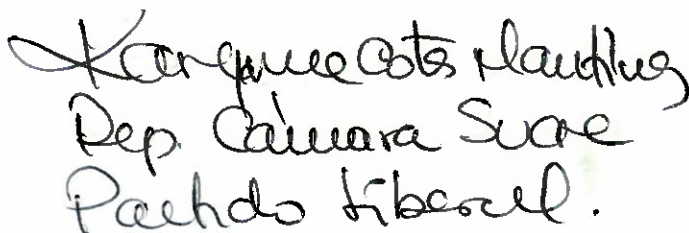 Karyme Cotes Martínez
Rep. Cámara Sucre
Partido Liberal.